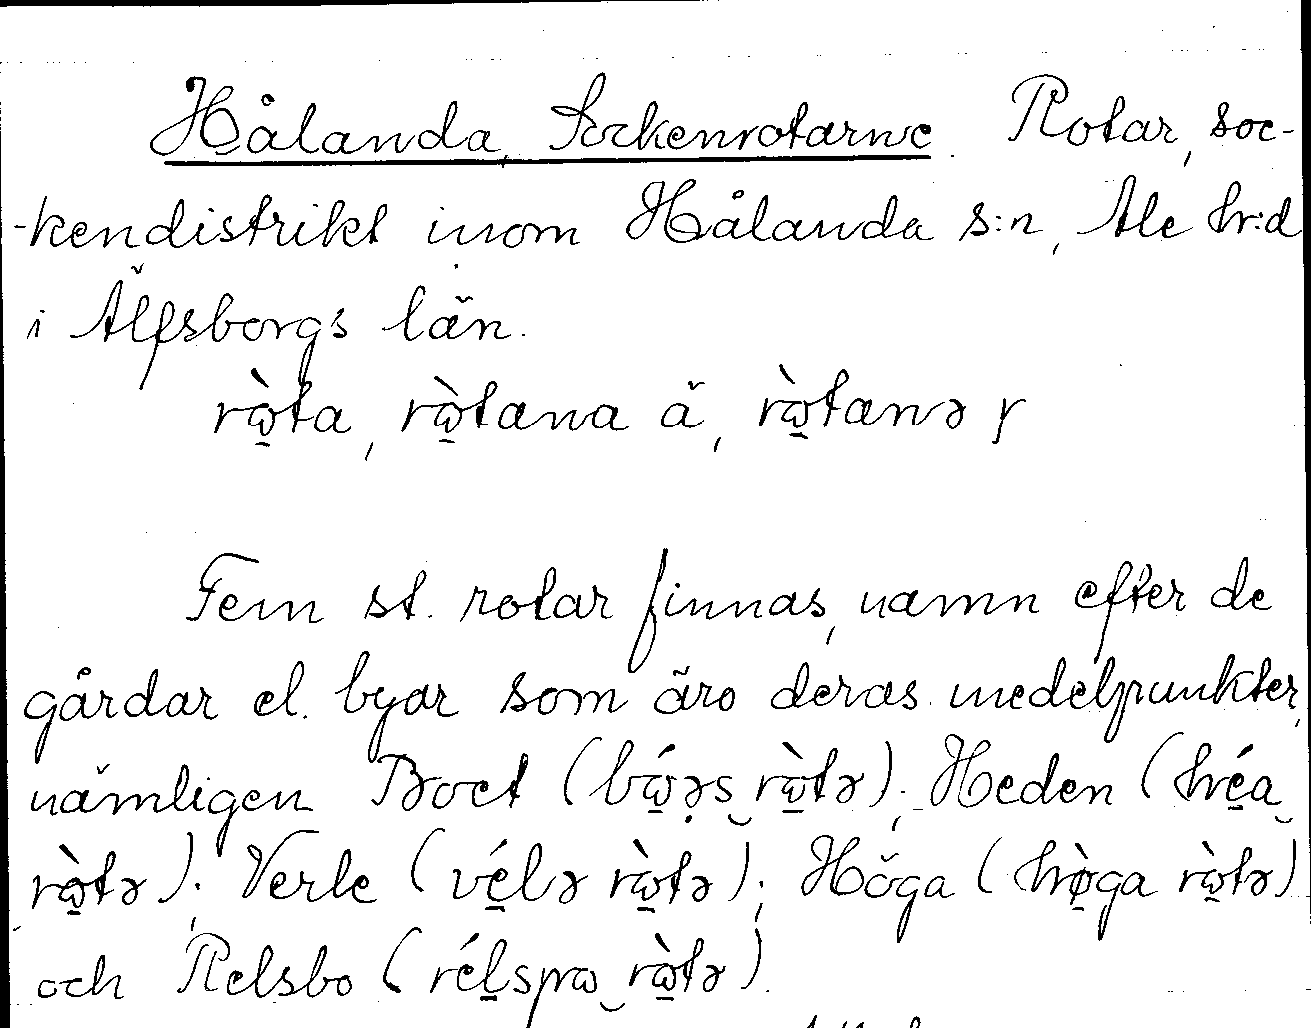 Hålanda, Sockenrotarne. Rotar, soc-
-kendistrikt inom Hålanda s:n, Ale hr:d
i Älfsborgs län.
rὼ̱ta, rὼ̱tæna ä, rὼ̱tænə
Fem st. rotar finnas, namn efter de
gårdar el. byar som äro deras medelpunkter,
nämligen Boet (bώ̱ə̣s‿rὼ̱tə); Heden (hé̱a‿
rὼ̱tə); Verle (vé̱lə rὼ̱tə); Höga (hø̱̀ga rὼ̱tə)
och Relsbo (rél̠spω‿rὼ̱tə).